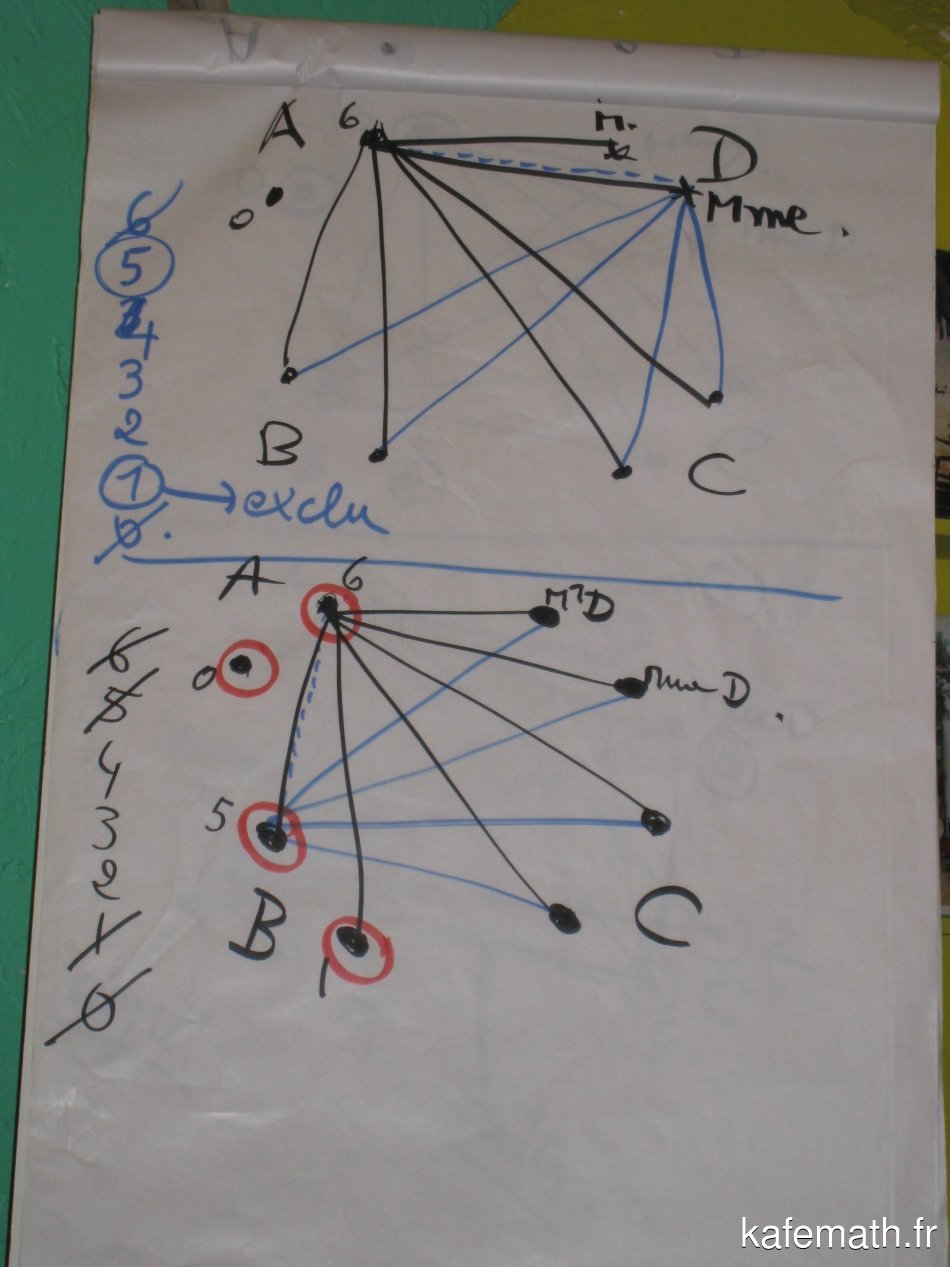 A 6 M.
D
0
Mme.
6
5
4
3
2
1 → exclu
0.
B
C
A 6
Mr D
0
Mme D.
6
5
4
3
2
1
0
5
B
C
1
kafemath.fr